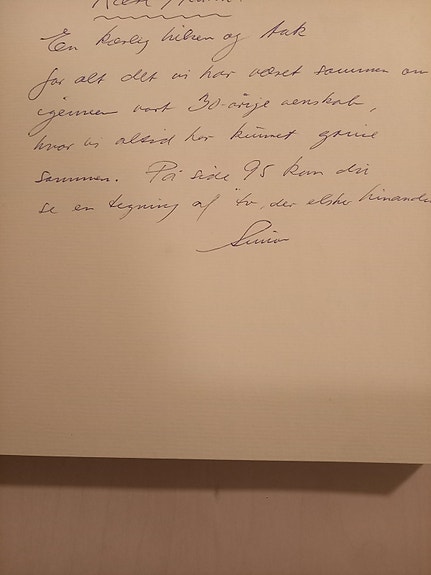 En kærlig hilsen og tak
for alt det vi har været sammen om
igennem vort 30-årige venskab,
hvor vi altid har kunnet grine
sammen. På side 95 kan du
se en tegning af to, der elsker hinanden